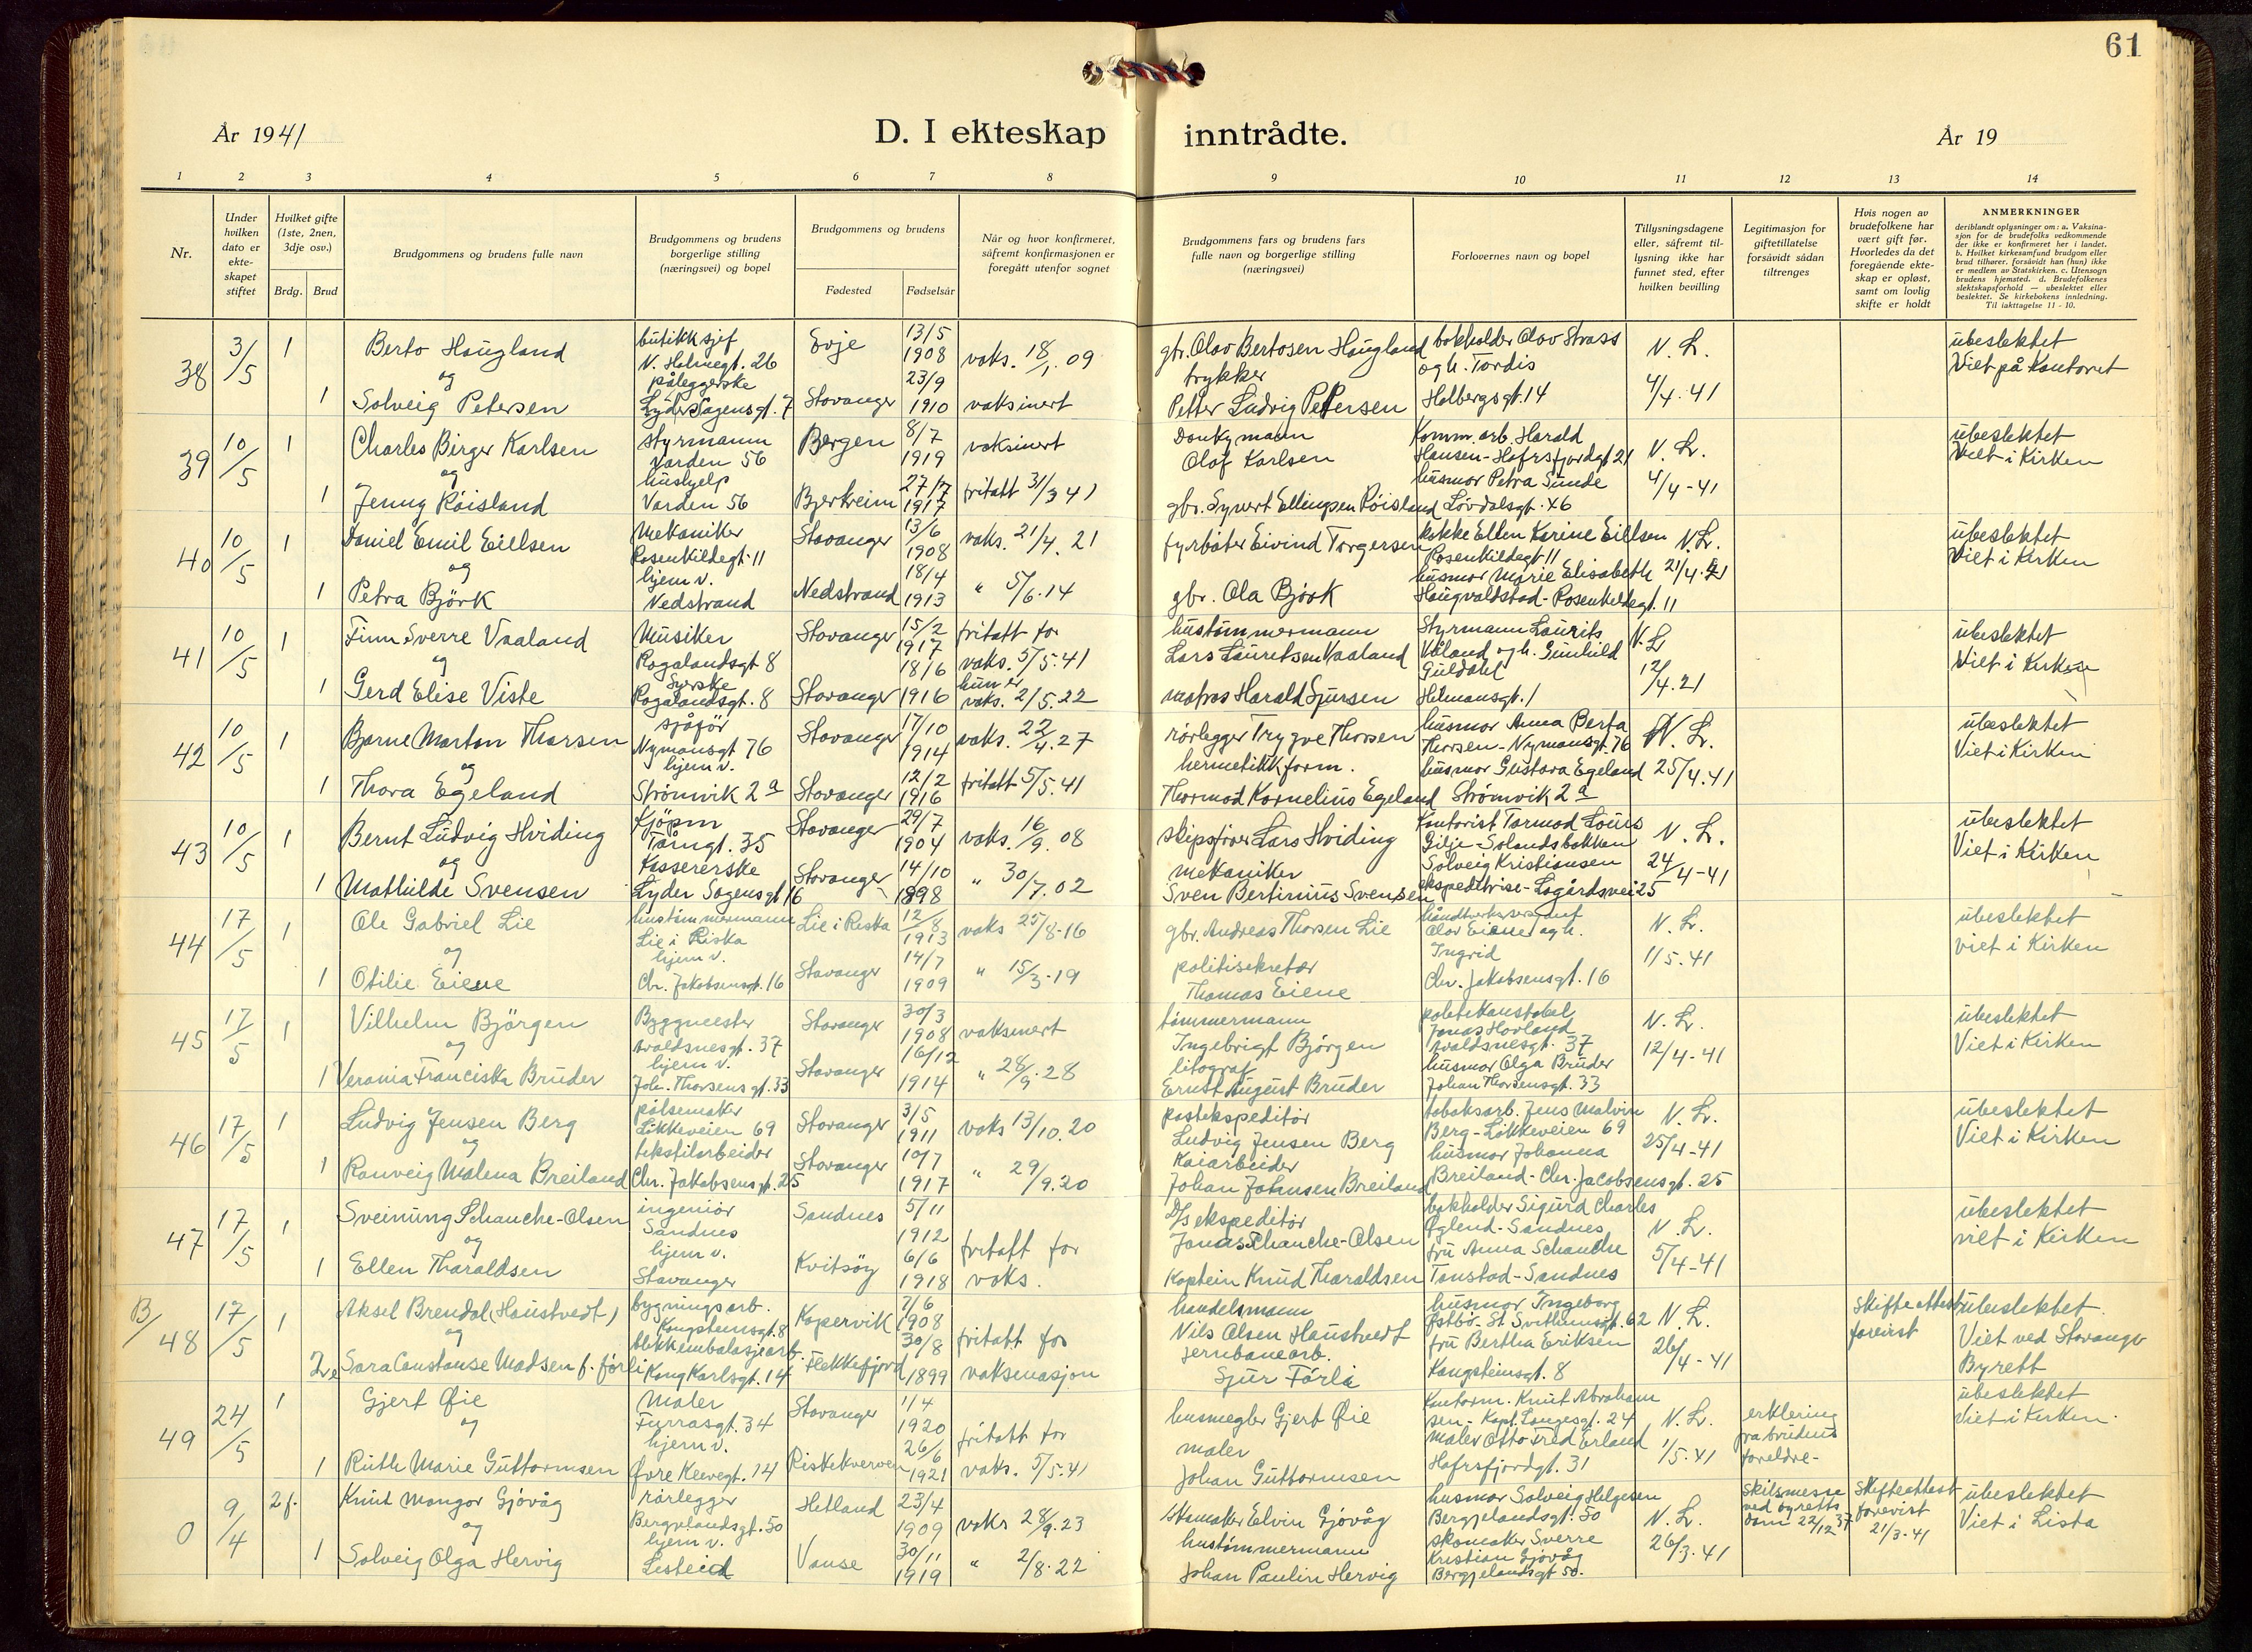 61
År 1941
D. I ekteskap inntrådte.
År 19
1 2 3 4 5 6 7 8 9 10 11 12 13 14
Nr.
Under hvilken dato er ekte- skapet stiftet
Hvilket gifte (1ste, 2nen, 3dje osv.)
Brdg. Brud
Brudgommens og brudens fulle navn
Brudgommens og brudens borgerlige stilling (næringsvei) og bopel
Brudgommens og brudens
Fødested Fødselsår
Når og hvor konfirmeret, såfremt konfirmasjonen er foregått utenfor sognet
Brudgommens fars og brudens fars fulle navn og borgerlige stilling (næringsvei)
Forlovernes navn og bopel
Tillysningsdagene eller, såfremt til- lysning ikke har funnet sted, efter hvilken bevilling
Legitimasjon for giftetillatelse forsåvidt sådan tiltrenges
Hvis nogen av brudefolkene har vært gift før. Hvorledes da det foregående ekte- skap er opløst, samt om lovlig skifte er holdt
ANMERKNINGER
deriblandt oplysninger om: a. Vaksina- sjon for de brudefolks vedkommende der ikke er konfirmeret her i landet. b. Hvilket kirkesamfund brudgom eller brud tilhører, forsåvidt han (hun) ikke er medlem av Statskirken. c. Utensogn brudens hjemsted. d. Brudefolkenes slektskapsforhold — ubeslektet eller beslektet. Se kirkebokens innledning. Til iakttagelse 11 - 10.
38 3/5 1 Berto Haugland butikksjef N. Holmegt. 26 Evje 13/5 1908 vaks. 18/1. 09 gbr. Olav Bertosen Haugland bokholder Olav Strass og h. Tordis N. L. ubeslektet Viet på Kontoret
og
1 Solveig Petersen påleggerske Lyder Sagensgt. 7 Stavanger 23/9 1910 vaksinert trykker Petter Ludvig Petersen Holbergsgt. 14 4/4. 41
39 10/5 1 Charles Birger Karlsen styrmann Varden 56 Bergen 8/7 1919 vaksinert Donkymann Olaf Karlsen Komm. arb. Harald Hansen - Hafrsfjordgt 21 N. L. ubeslektet Viet i Kirken
og
1 Jenny Røisland hushjelp Varden 56 Bjerkreim 27/7 1917 fritatt 31/3 41 gbr. Syvert Ellingsen Røisland husmor Petra Sunde Løvdalsgt. 46 4/4 - 41
40 10/5 1 Daniel Emil Eillsen Mekaniker Rosenkildegt. 11 Stavanger 13/6 1908 vaks. 21/4. 21 fyrbøter Eivind Torgersen kokke Ellen Karine Eillsen Rosenkildegt 11 N. L. ubeslektet Viet i Kirken
og
1 Petra Björk hjem v. Nedstrand Nedstrand 18/4 1913 " 5/6. 14 gbr. Ola Bjørk husmor Marie Elisabeth Haugvaldstad - Rosenkildegt. 11 21/4.
41 10/5 1 Finn Sverre Vaaland Musiker Rogalandsgt 8 Stavanger 15/2 1917 fritatt for vaks. 5/5. 41 hustømmermann Lars Lauritsen Vaaland Styrmann Laurits Våland og h. Gunhild N. L ubeslektet Viet i Kirken
og
1 Gerd Elise Viste Syerske Rogalandsgt. 8 Stavanger 18/6 1916 hun er vaks. 2/5. 22 matros Harald Sjursen Guldahl Hetmansgt. 1 12/4. 21
42 10/5 1 Bjarne Morton Thorsen sjåfør Nymansgt 76 Stavanger 17/10 1914 vaks. 22/4. 27 rørlegger Trygve Thorsen husmor Anna Berta Thorsen - Nymansgt. 76 N. L. ubeslektet Viet i Kirken
og
1 Thora Egeland hjem v. Strømvik 2a Stavanger 12/2 1916 fritatt 5/5. 41 hermetikkform. Thormod Kornelius Egeland husmor Gustava Egeland Strømvik 2a 25/4. 41
43 10/5 1 Bernt Ludvig Hviding Kjøpm Tårngt. 35 Stavanger 29/7 1904 vaks. 16/9. 08 skipsfører Lars Hviding Kontorist Tormod Louis Gilje - Solandsbakken N. L. ubeslektet Viet i Kirken
og
1 Mathilde Svensen Kassererske Lyder Sagensgt 16 Stavanger 14/10 1898 " 30/7. 02 mekaniker Sven Bertinius Svensen Solveig Kristiansen ekspeditrise - Lagårdsvei 25 24/4 - 41
44 17/5 1 Ole Gabriel Lie hustømmermann Lie i Riska Lie i Riska 12/8 1913 vaks 25/8. 16 gbr. Andreas Thorsen Lie håndverkssersjant Olav Eiene og h. N. L. ubeslektet viet i Kirken
og
1 Otilie Eiene hjem v. Chr. Jakobsensgt. 16 Stavanger 14/7 1909 " 15/3. 19 politisekretær Thomas Eiene Ingrid Chr. Jakobsensgt. 16 1/5. 41
45 17/5 1 Vilhelm Björgen Byggmester Avaldsnesgt. 37 Stavanger 30/3 1908 vaksinert tømmermann Ingebrigt Björgen politikonstabel Jonas Hovland Avaldsnesgt. 37 N. L. ubeslektet Viet i Kirken
og
1 Verania Franciska Bruder hjem v. Joh. Thorsensgt. 33 Stavanger 16/12 1914 " 28/9. 28 litograf Ernst August Bruder husmor Olga Bruder Johan Thorsensgt. 33 12/4 - 41
46 17/5 1 Ludvig Jensen Berg pølsemaker Løkkeveien 69 Stavanger 3/5 1911 vaks 13/10. 20 postekspeditør Ludvig Jensen Berg tobaksarb. Jens Malvin Berg - Løkkeveien 69 N. L. ubeslektet Viet i Kirken
og
1 Ranveig Malena Breiland tekstilarbeider Chr. Jakobsensgt. 25 Stavanger 10/7 1917 " 29/9. 20 Kaiarbeider Johan Johnsen Breiland husmor Johanna Breiland - Chr. Jacobsensgt. 25 25/4 - 41
47 17/5 1 Sveinung Schanche-Olsen ingeniør Sandnes Sandnes 5/11 1912 fritatt for D/s ekspeditør Jonas Schanche-Olsen bokholder Sigurd Charles Øglend - Sandnes N. L. ubeslektet viet i Kirken
og
1 Ellen Tharaldsen hjem v. Stavanger Kvitsøy 6/6 1918 vaks. Kaptein Knud Tharaldsen fru Anna Schanche Tonstad - Sandnes 5/4 - 41
B/48 17/5 1 Aksel Brendal (Haustvedt) bygningsarb. Kongsteinsgt. 8 Kopervik 7/6 1908 fritatt for handelsmann Nils Olsen Haustvedt husmor Ingeborg Østbø. St. Svithunsgt. 62 N. L. Skifteattest forevist ubeslektet. Viet ved Stavanger Byrett
og
2. Sara Constanse Madsen f. førli blekkemballasjearb. Kong Karlsgt. 14 Flekkefjord 30/8 1899 vaksinasjon jernbanearb. Sjur Førli fru Bertha Eriksen Kongsteinsgt. 8 26/4 - 41
49 24/5 1 Gjert Øie Maler Furrasgt. 34 Stavanger 1/4 1920 fritatt for husmegler Gjert Øie Kontorm. Knut Abrahamsen - Kapt. Langesgt. 24 N. L. erklering fra brudens foreldre - ubeslektet Viet i Kirken.
og
1 Ruth Marie Guttormsen hjem v. Øvre Kleivegt. 14 Riskekverven 26/6 1921 vaks. 5/5. 41 maler Johan Guttormsen maler Otto Fred Erland Hafrsfjordgt. 31 1/5. 41
0 9/4 2 f. Knut Mangor Gjøvåg rørlegger Bergjelandsgt. 50 Hetland 23/4 1909 vaks 28/9. 23 Skomaker Elvin Gjøvåg husmor Solveig Helgesen Bergjelandsgt. 50 N. L. Skilsmesse ved byretts dom 22/12 37 Skifteattest forevist 21/3. 41 ubeslektet Viet i Lista
og
1 Solveig Olga Hervig hjem v. Listeid Vanse 30/11 1919 " 2/8. 22 hustømmermann Johan Paulin Hervig skomaker Sverre Kristian Gjøvåg Bergjelandsgt 50. 26/3. 41